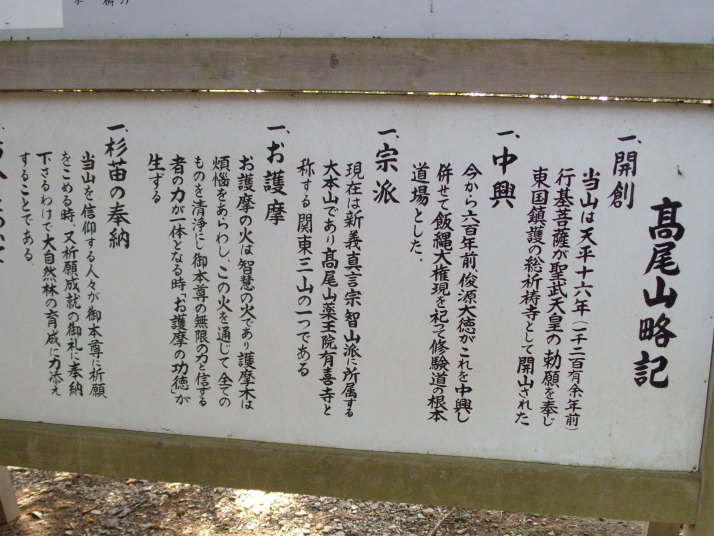 髙尾山略記
一、開創
当山は天平十六年(一千二百有余年前)
行基菩薩が聖武天皇の勅願を奉じ
東国鎮護の総祈祷寺として開山された
一、中興
今から六百年前俊源大徳がこれを中興し
併せて飯縄大権現を祀って修験道の根本
道場とした。
一、宗派
現在は新義真言宗智山派に所属する
大本山であり髙尾山薬王院有喜寺と
称する関東三山の一つである
一、お護摩
お護摩の火は智慧の火であり護摩木は
煩悩をあらわし、この火を通じて全ての
ものを清浄にし御本尊の無限の力と信する
者の力が一体となる時「お護摩の功徳」が
生ずる
一、杉苗の奉納
当山を信仰する人々が御本尊に祈願
をこめる時、又祈願成就の御礼に奉納
下さるわけで大自然林の育成に力添え
することである